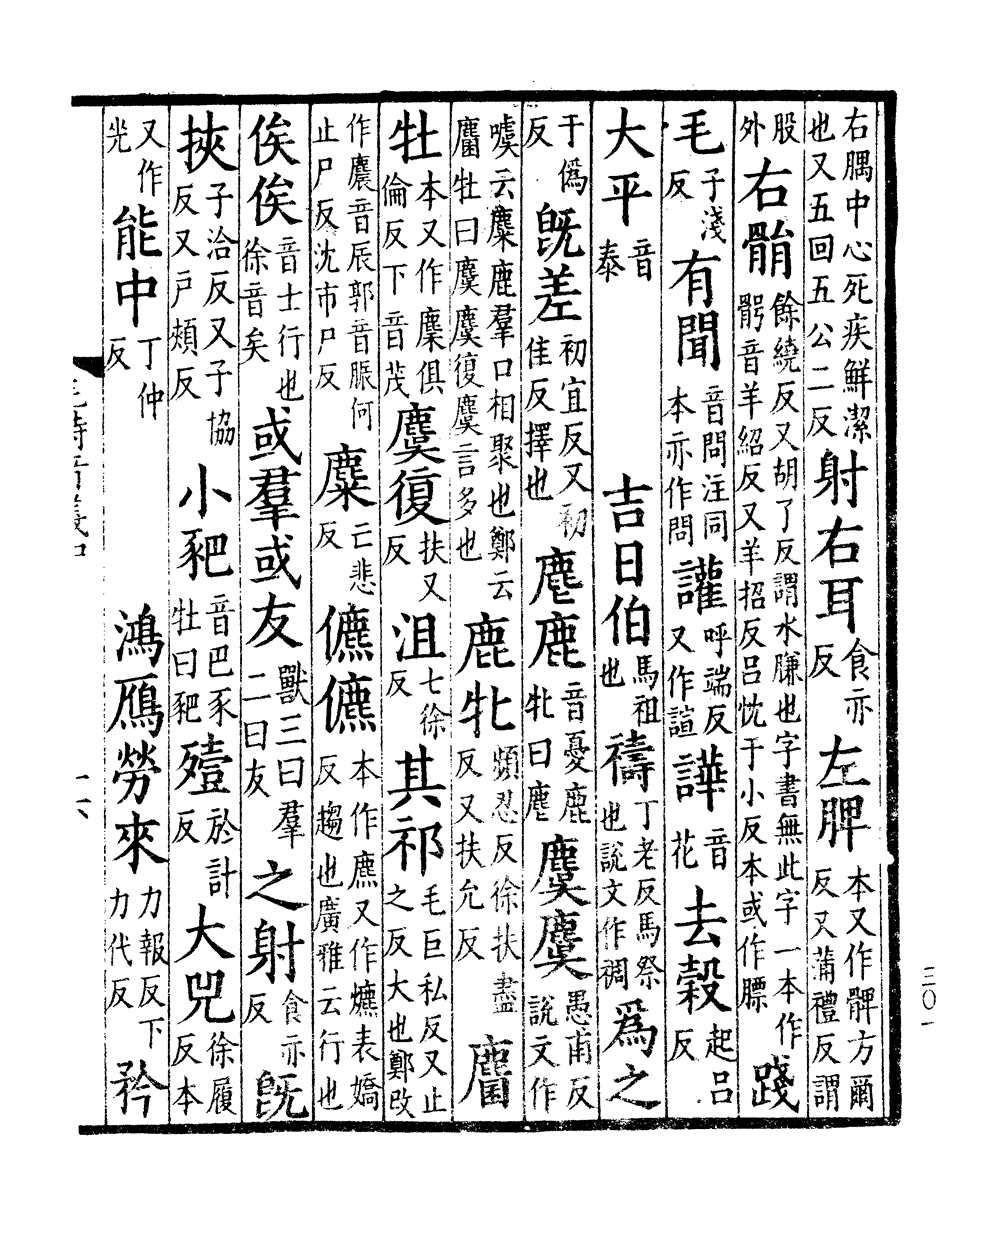 右腢中心死疾鮮潔也又五回五公二反射右耳食亦反左脾本又作髀方爾反又蒲禮反謂
股外右䯚餘繞反又胡了反謂水膁也字書無此字一本作音羊紹反又羊招反呂忱于小反本或作膘踐
毛子淺反有聞音問注同本亦作問讙呼端反又作諠譁音花去穀起呂反
大平音泰 吉日伯馬祖也禱丁老反馬祭也說文作禂爲之
于僞反既差初宜反又初佳反擇也麀鹿音憂鹿牝曰麀麌麌愚甫反說文作
噳云麋鹿羣口相聚也鄭云麕牡曰麌麌復麌言多也鹿牝頻忍反徐扶盡反又扶允反麕
牡本又作麇俱倫反下音茂麌復扶又反沮七徐反其祁毛巨私反又止之反大也鄭改
作麎音辰郭音脤何止尸反沈市尸反麋亡悲反儦儦本作麃又作爊表嬌反趨也廣雅云行也
俟俟音士行也徐音矣或羣或友獸三曰羣二曰友之射食亦反既
挾子洽反又子協反又戶頰反小豝音巴豕牡曰豝殪於計反大兕徐履反本
又作光能中丁仲反 鴻鴈勞來力報反下力代反矜
三〇一